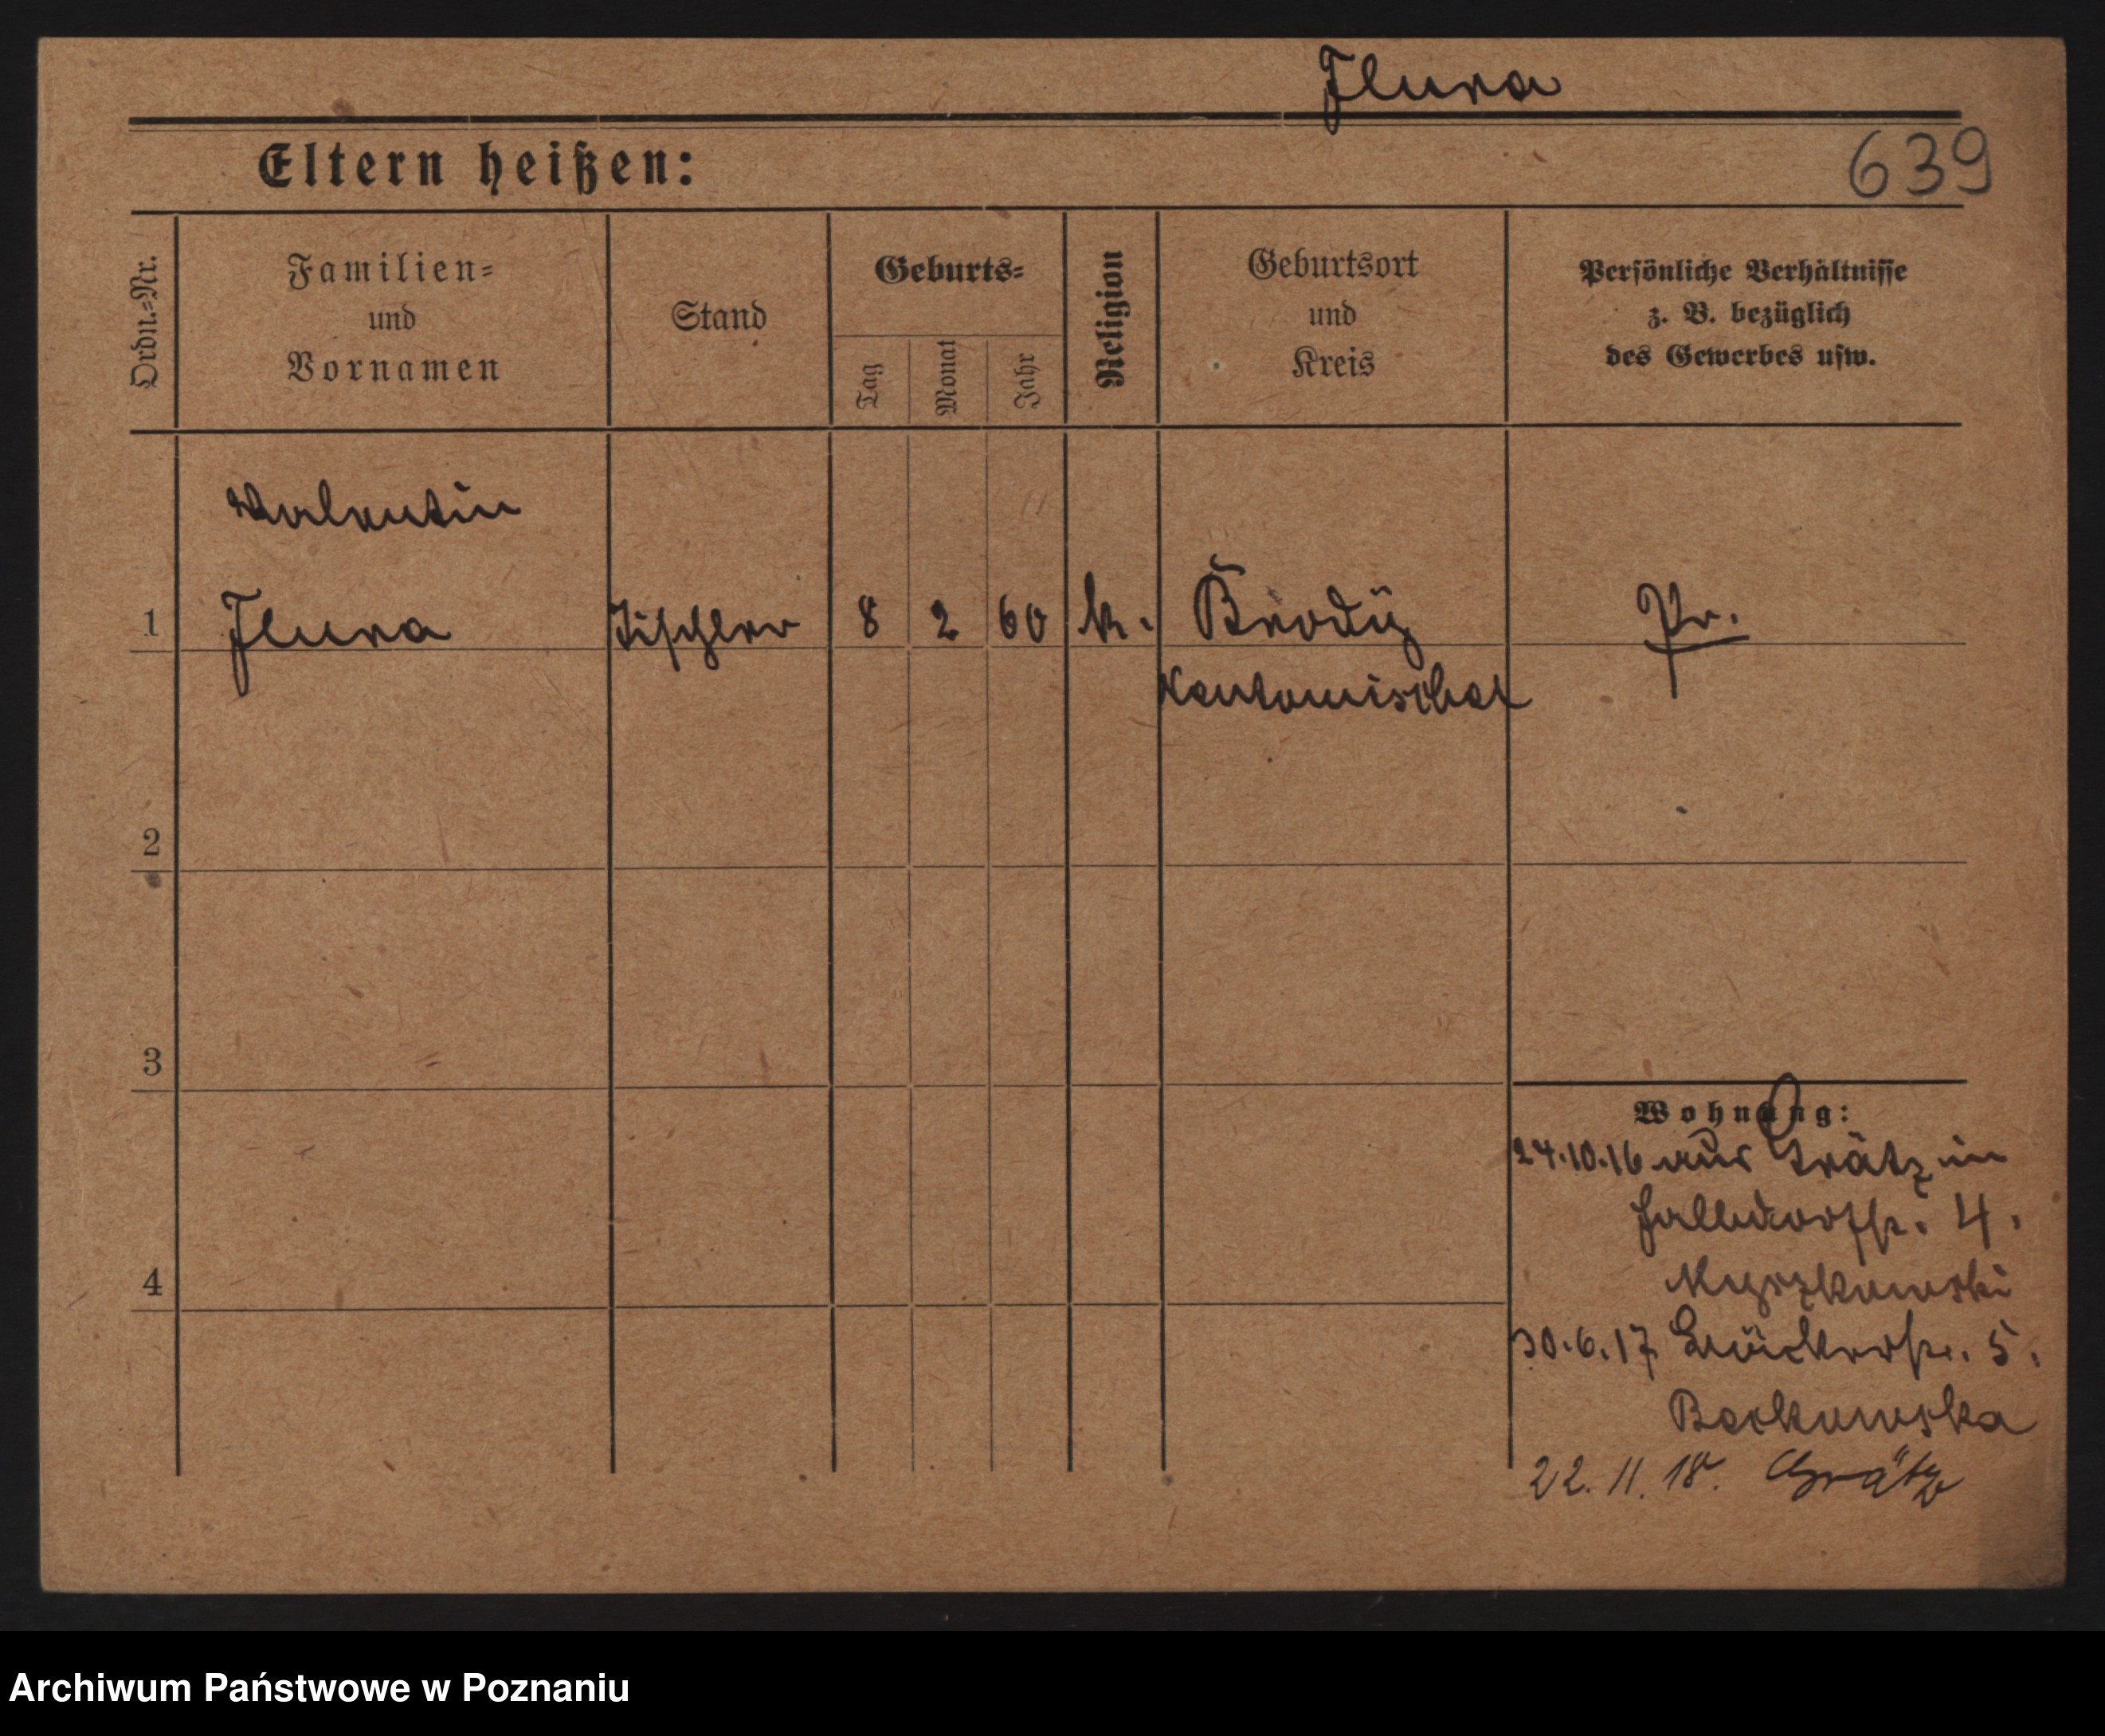 Flura
Eltern heißen:
639
Ordn.=Nr.
Familien=
und
Vornamen
Stand
Geburts=
Tag
Monat
Jahr
Religion
Geburtsort
und
Kreis
Persönliche Verhältnisse
z. B. bezüglich
des Gewerbes usw.
Valentin
1 Flura Tischler 8 2 60 k. Brody Pr.
2
3
4
Wohnung:
24.10.16 aus Grätz in
4.
30.6.17 5.
22. 11. 18. Grätz
Archiwum Państwowe w Poznaniu